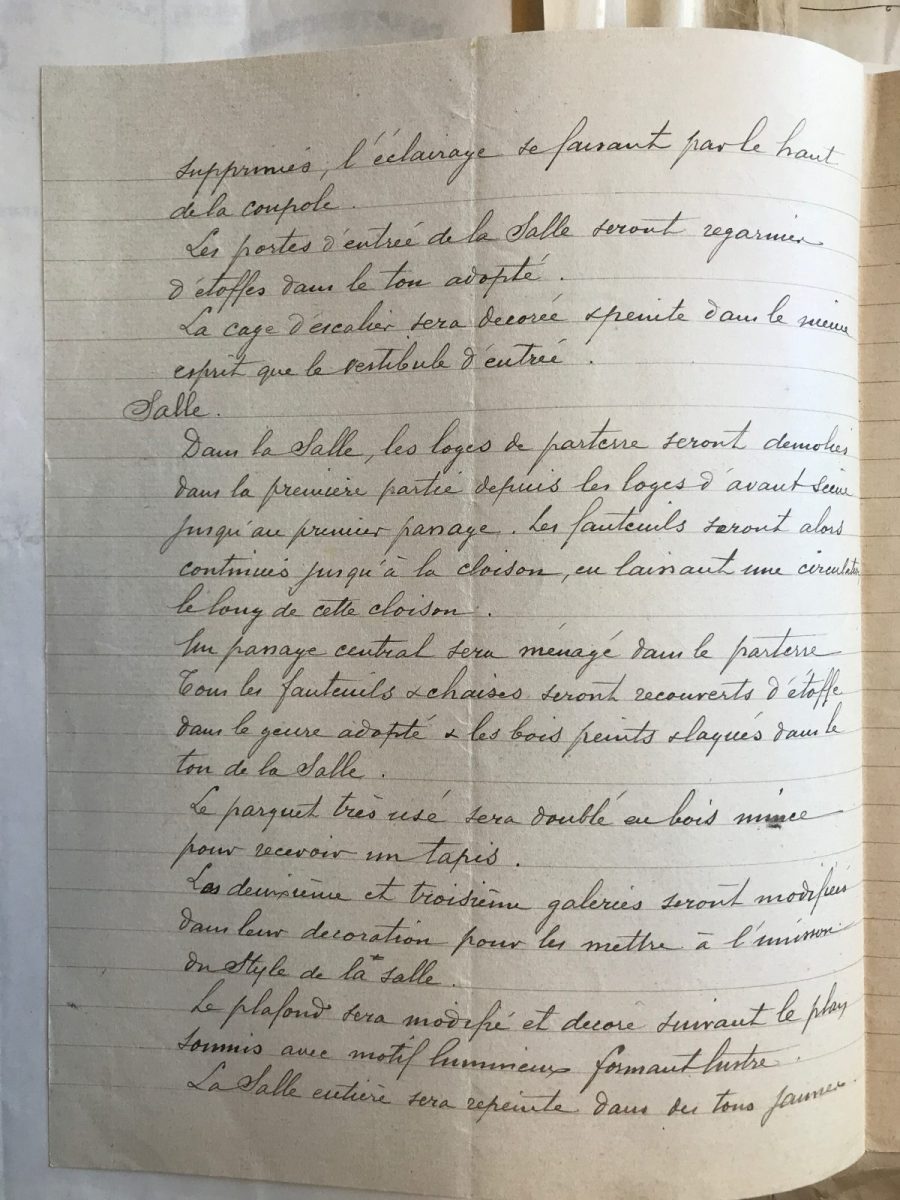 supprimés, l'éclairage se faisant par le haut
de la coupole.
Les portes d'entrée de la Salle seront regarnies
d'étoffes dans le ton adopté.
La cage d'escalier sera decorée & peinte dans le même
esprit que le vestibule d'entrée.
Salle.
Dans la Salle, les loges de parterre seront demolies
dans la première partie depuis les loges d'avant scène
jusqu'au premier passage. Les fauteuils seront alors
continués jusqu'à la cloison, en laissant une circulation
le long de cette cloison.
Un passage central sera ménagé dans le parterre
Tous les fauteuils & chaises seront recouverts d'étoffe
dans le genre adopté & les bois peints & laqués dans le
ton de la Salle.
Le parquet très usé sera doublé en bois mince
pour recevoir un tapis.
Les deuxième et troisième galeries seront modifiées
dans leur decoration pour les mettre à l'unisson
du Style de la salle.
Le plafond sera modifié et decoré suivant le plan
soumis avec motif lumineux formant lustre.
La Salle entière sera repeinte dans des tons jaunes.